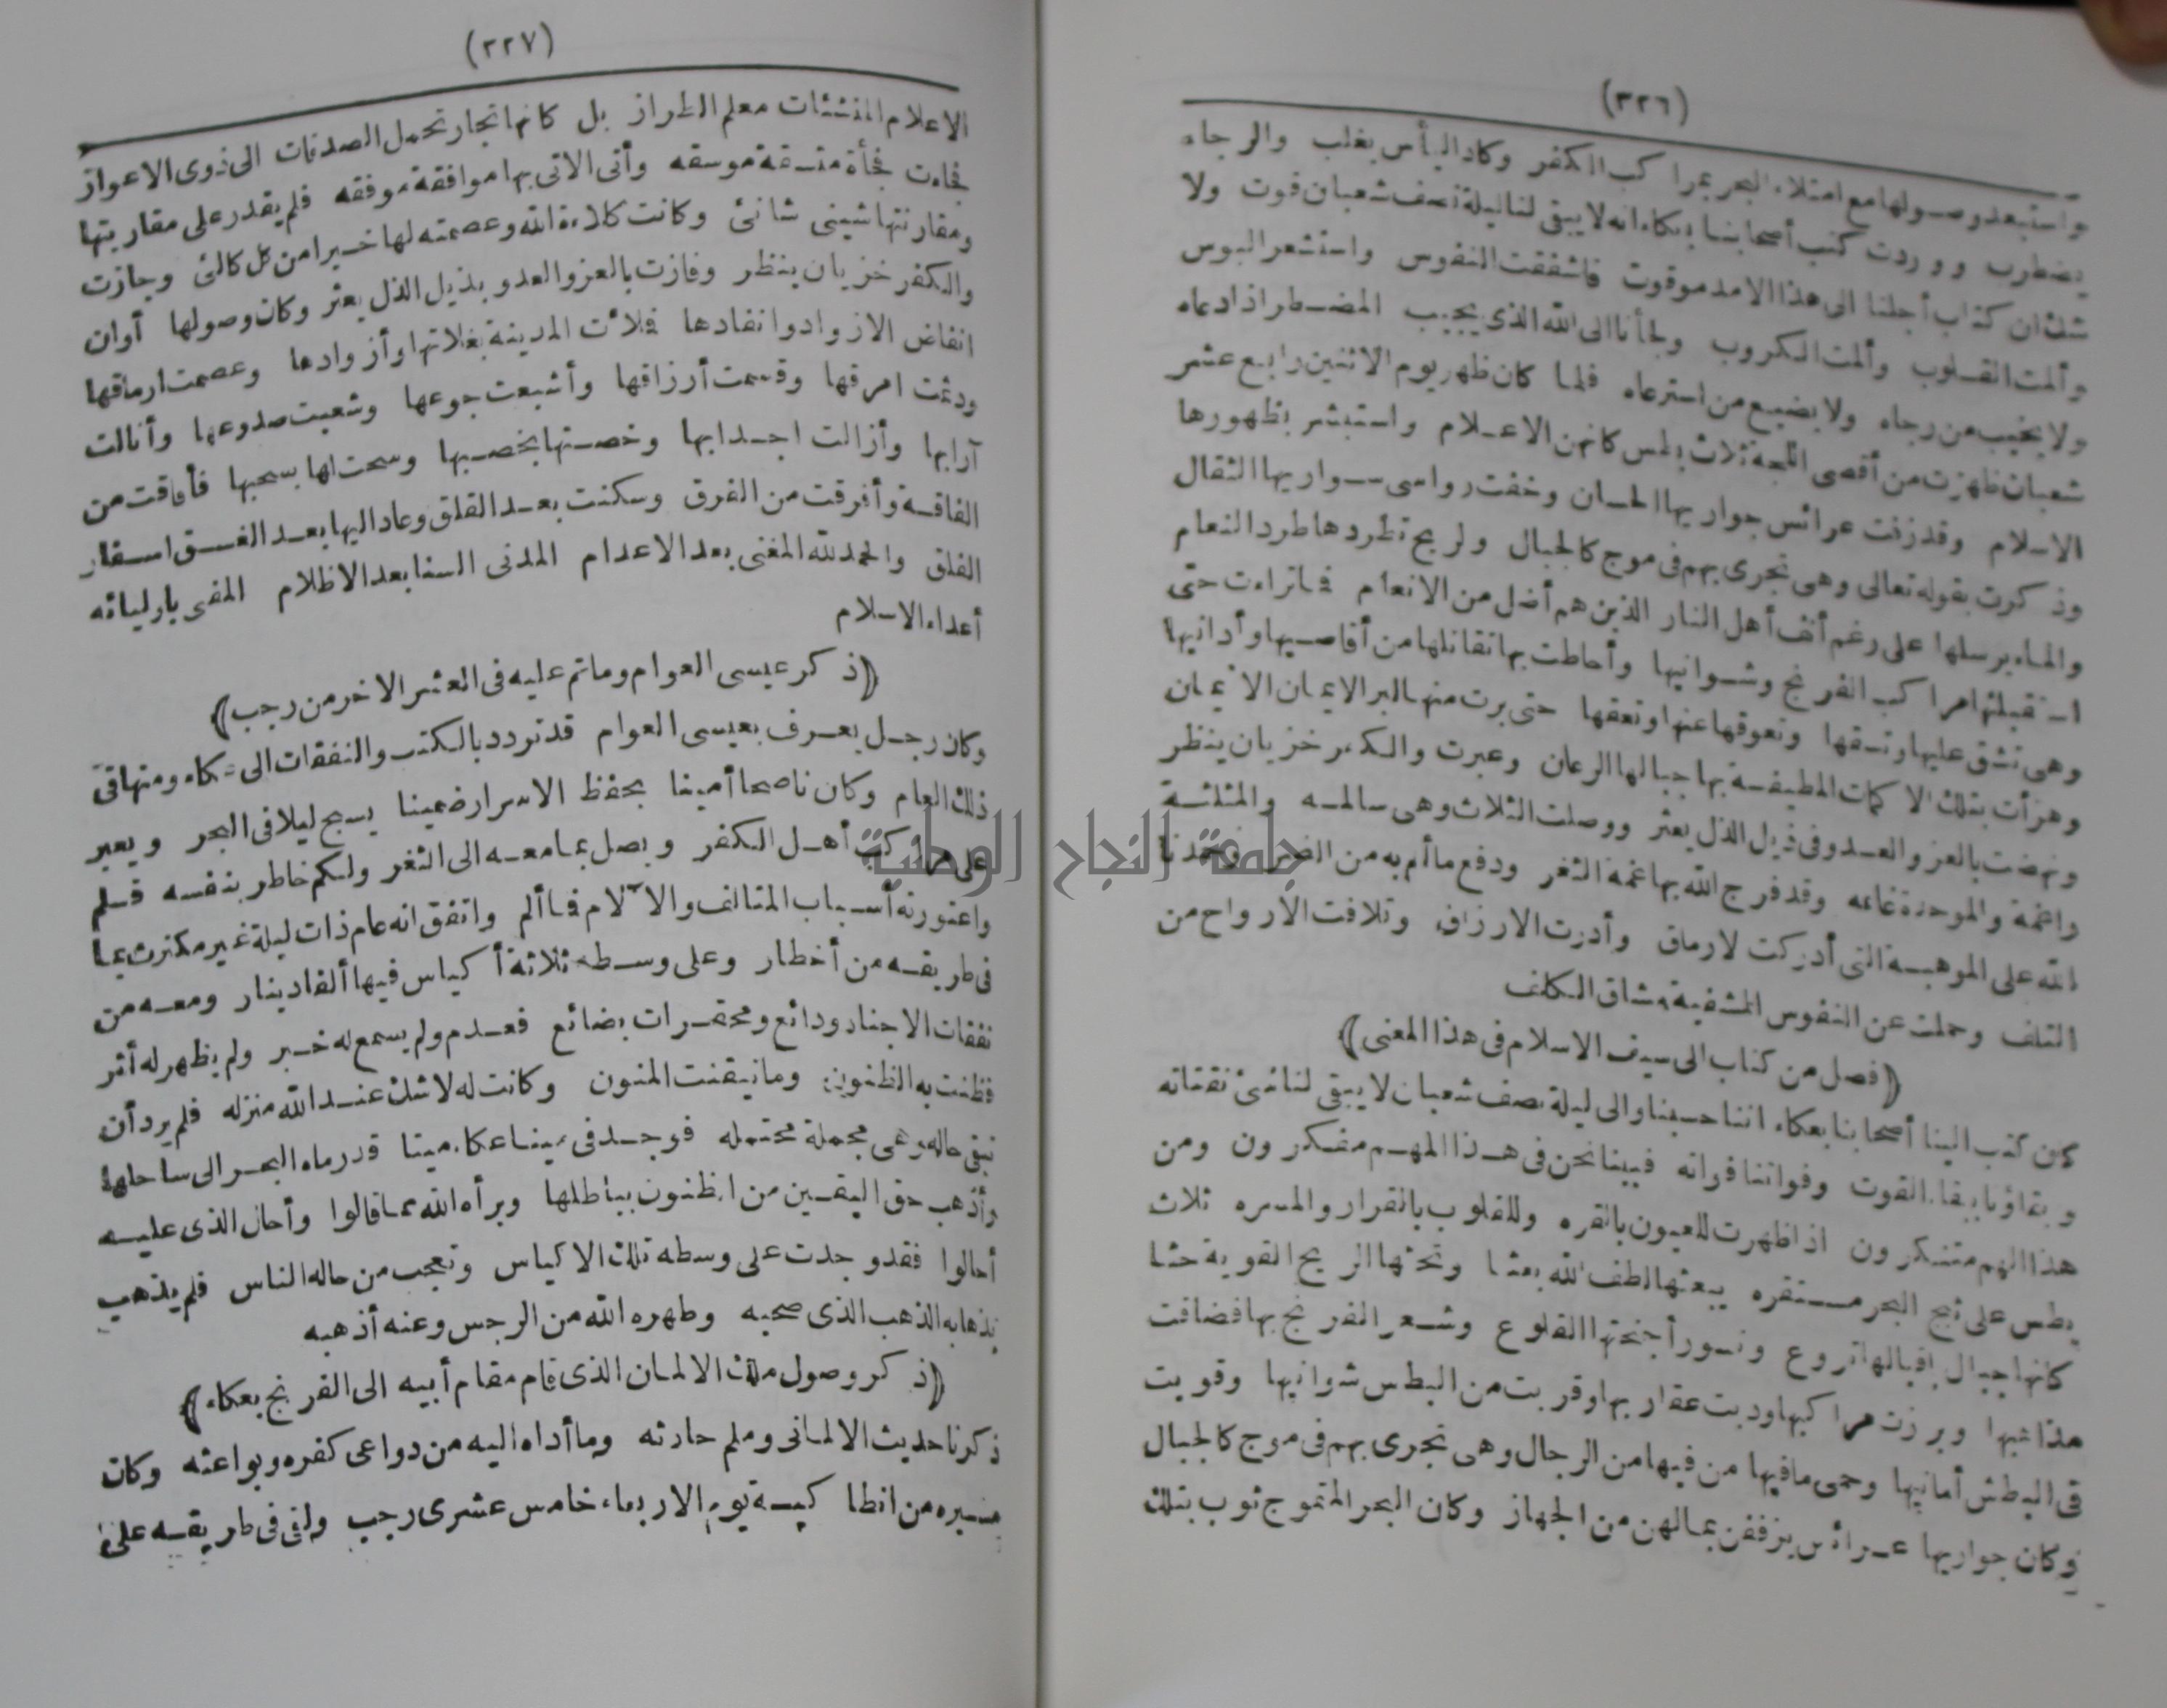 (٣٢٦)
واستبعد وصولها مع امتلاء البحر بمراكب الكفر وكاد اليأس يغلب والرجاء
يضطرب ووردت كتب أصحابنا بعكاء انه لا يبقى لنا ليلة نصف شعبان قوت ولا
شك ان كتاب أجلنا الى هذا الامد موقوت فاشفقت النفوس واستشعر البوس
وألمت القلوب وألمت الكروب ولجأنا الى الله الذى يجيب المضطر اذا دعاه
ولا يخيب من رجاه ولا يضيع من استرعاه فلما كان ظهر يوم الاثنين رابع عشر
شعبان ظهرت من أقصى اللجة ثلاث بطس كانهن الاعلام واستبشر بظهورها
الاسلام وقد زفت عرائس جواريها الحسان وخفت رواسى سواريها الثقال
وذكرت بقوله تعالى وهى تجرى بهم فى موج كالجبال والريح تطردها طرد النعام
والماء يرسلها على رغم أنف أهل النار الذين هم أضل من الانعام فما تراءت حتى
استقبلتها مراكب الفرنج وشوانيها وأحاطت بها تقاتلها من أقاصيها وأدانيها
وهى تشق عليها وتسقها وتعوقها عنها وتعقها حتى برت منها البر الايمان الايمان
وهزأت بتلك الاكمات المطيفة بها جبالها الرعان وعبرت والكفر خزيان ينظر
ونهضت بالعز والعدو فى ذيل الذل يعثر ووصلت الثلاث وهى سالمه والمثلثة
واغمة والموحدة غاعه وقد فرج الله بها غمة الثغر ودفع ما ألم به من الضر وحمدنا
الله على الموهبة التى أدركت الارماق وأدرت الارزاق وتلافت الارواح من
التلف وحملت عن النفوس المشفية مشاق الكلف
(فصل من كتاب الى سيف الاسلام فى هذا المعنى)
كان كتب الينا أصحابنا بعكاء اننا حسبنا والى ليلة نصف شعبان لا يبقى لنا شئ نقتاته
وبقاؤنا ببقاء القوت وفواتنا فواته فبينا نحن فى هذا المهم مفكرون ومن
هذا الهم متنكرون اذ اظهرت للعيون بالقره وللقلوب بالقرار والمسره ثلاث
بطس على ثبج البحر مستقره يبعثها لطف الله بعثا وتحثها الريح القوية حثا
كانها جبال اقبالها تروع ونسور أجنحتها القلوع وشعر الفرنج بها فضاقت
مذاهبها وبرزت مراكبها ودبت عقاربها وقربت من البطس شوانيها وقويت
فى البطش أمانيها وحمى ما فيها من فيها من الرجال وهى تجرى بهم فى موج كالجبال
وكان جواريها عرائس يزففن بمالهن من الجهاز وكان البحر المتموج ثوب بتلك
(٣٢٧)
الاعلام المنشئات معلم الطراز بل كانها تجار تحمل الصدقات الى ذوى الاعواز
فجاءت فجأة متسقة موسقه وأتى الآتى بها موافقة موفقه فلم يقدر على مقاربتها
ومقارنتها شينى شانئ وكانت كلاءة الله وعصمته لها خيرا من كل كالئ وجازت
والكفر خزيان ينظر وفازت بالعز والعدو بذيل الذل يعثر وكان وصولها أوان
انفاض الازواد وانفادها فلأت المدينة بغلاتها وأزوادها وعصمت ارماقها
ودعمت امرقها وقسمت أرزاقها وأشبعت جوعها وشعبت صدوعها وأنالت
آرابها وأزالت اجدابها وخصتها بخصبها وسحت لها بسحبها فأفاقت من
الفاقة وأفرقت من الفرق وسكنت بعد القلق وعاد اليها بعد الغسق اسفار
الفلق والحمد لله المغنى بعد الاعدام المدنى السنا بعد الاظلام المفنى باوليائه
أعداء الاسلام
(ذكر عيسى العوام وماتم عليه فى العشر الاخر من رجب)
وكان رجل يعرف بعيسى العوام قد تردد بالكتب والنفقات الى عكاء ومنها فى
ذلك العام وكان ناصحا أمينا بحفظ الاسرار ضمينا يسبح ليلا فى البحر ويعبر
على مراكب أهل الكفر ويصل بما معه الى الثغر ولكم خاطر بنفسه فسلم
واعتورته أسباب المتالف والآلام فما ألم واتفق انه عام ذات ليلة غير مكترث بما
فى طريقه من أخطار وعلى وسطه ثلاثة أكياس فيها ألفا دينار ومعه من
نفقات الاجناد ودائع ومحتقرات بضائع فعدم ولم يسمع له خبر ولم يظهر له أثر
فظنت به الظنون وما تيقنت المنون وكانت له لا شك عند الله منزله فلم يرد أن
تبقى حاله وهى مجملة محتمله فوجد فى مينا عكا ميتا قد رماه البحر الى ساحلها
وأذهب حق اليقين من الظنون بباطلها وبرأه الله مما قالوا وأحال الذى عليه
أحالوا فقد وجدت على وسطه تلك الاكياس وتعجب من حاله الناس فلم يذهب
بذهابه الذهب الذى صحبه وطهره الله من الرجس وعنه أذهبه
(ذكر وصول ملك الالمان الذى قام مقام أبيه الى الفرنج بعكاء)
ذكرنا حديث الالمانى وملم حادثه وما أداه اليه من دواعى كفره وبواعثه وكان
مسيره من انطاكية يوم الاربعاء خامس عشرى رجب ولقى فى طريقه على
جامعة النجاح الوطنية